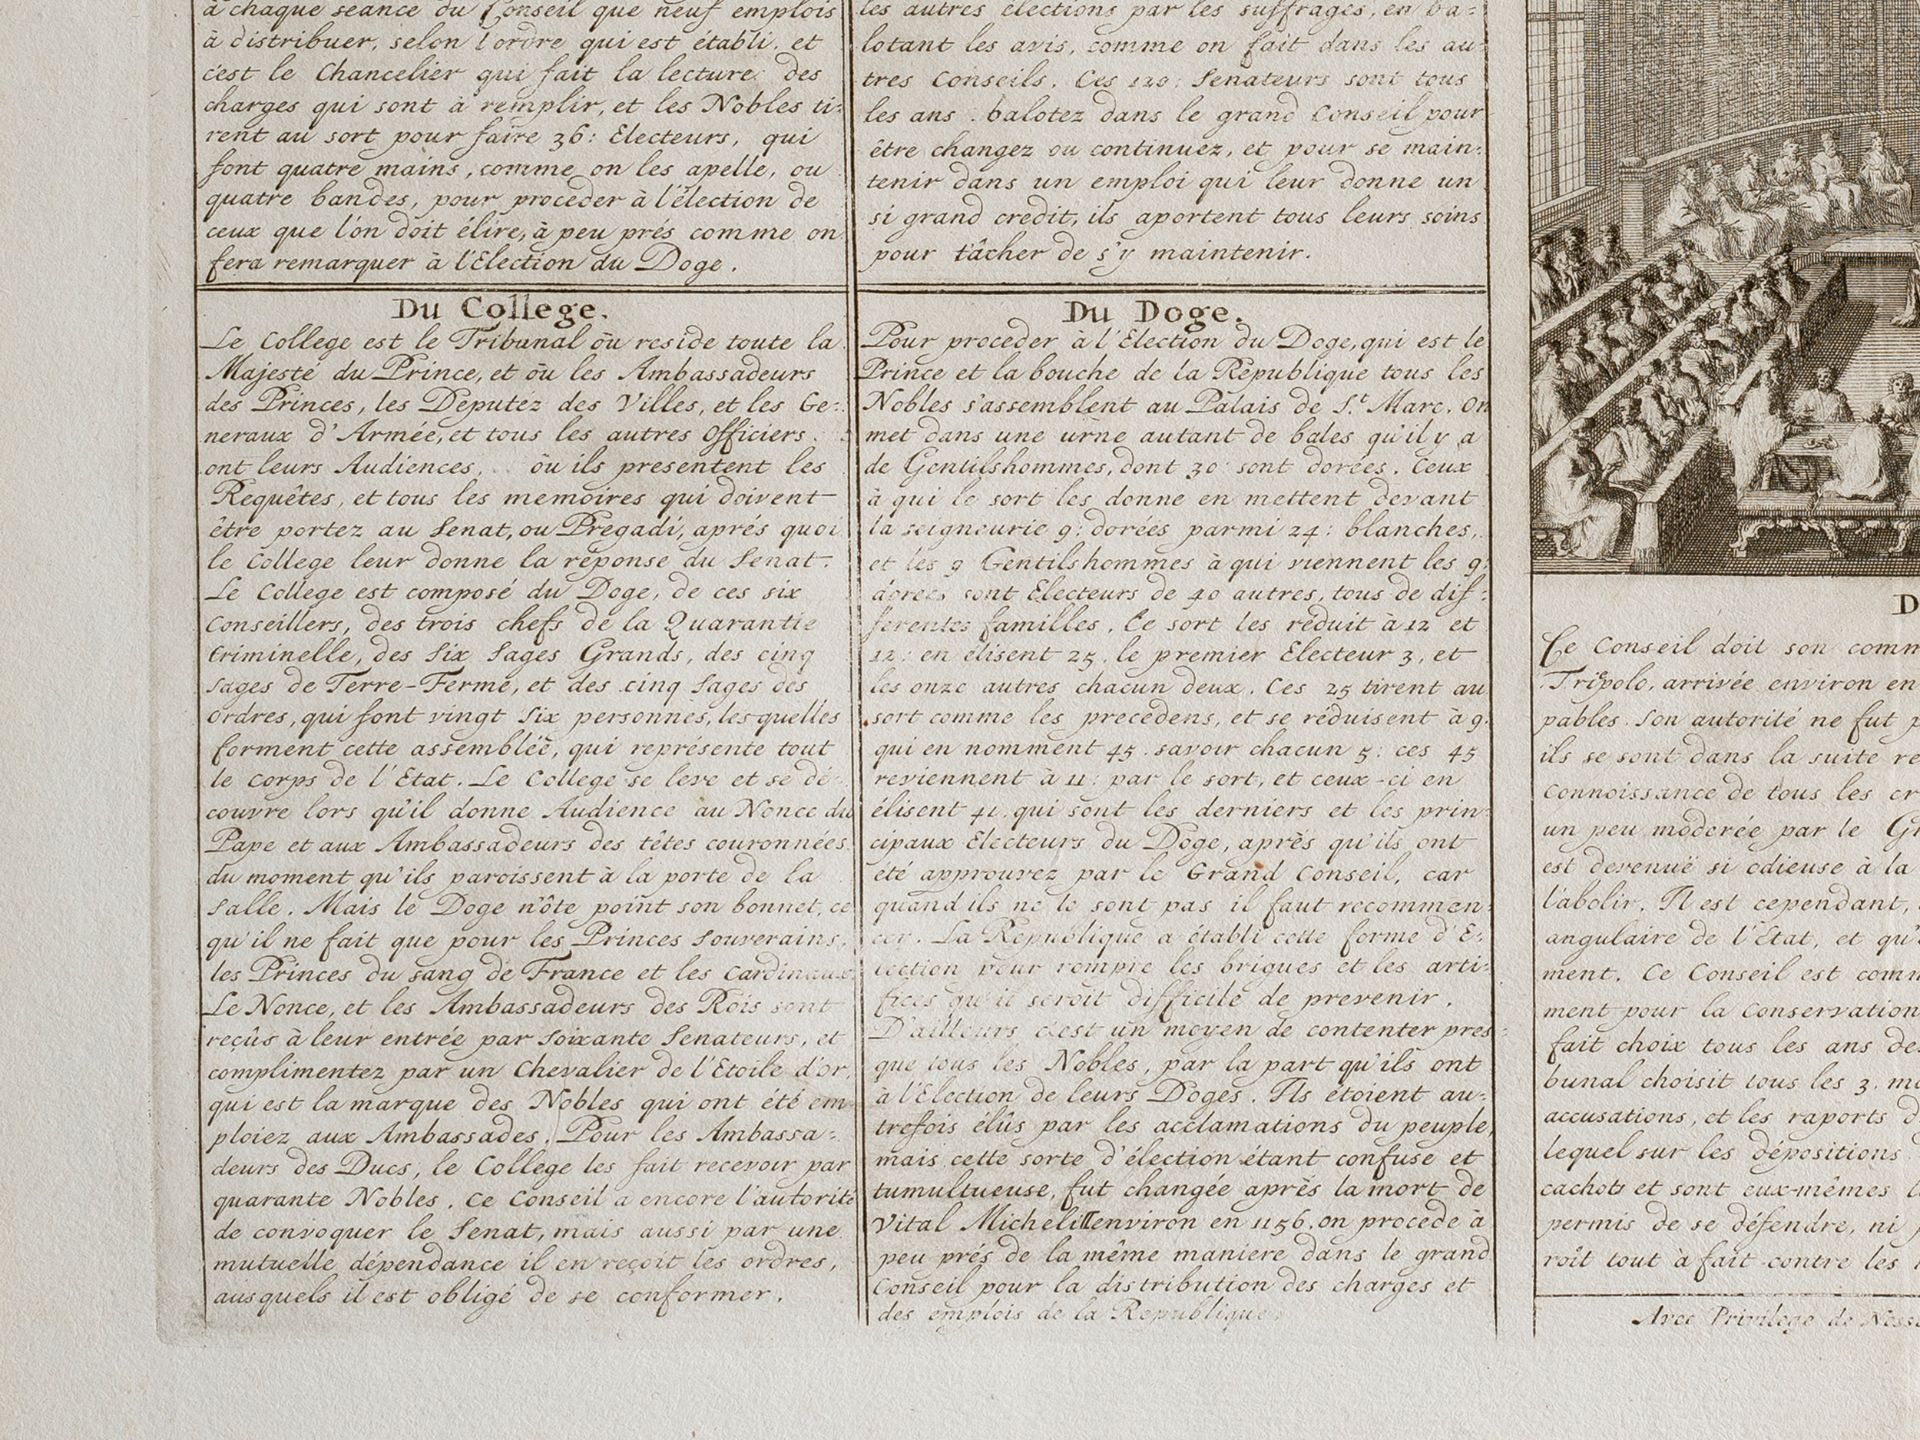 à chaque séance du Conseil que neuf emplois
à distribuer, selon l'ordre qui est établi, et
c'est le Chancelier qui fait la lecture des
charges qui sont à remplir, et les Nobles ti-
rent au sort pour faire 36: Electeurs, qui
font quatre mains, comme on les apelle, ou
quatre bandes, pour proceder à l'élection de
ceux que l'on doit élire, à peu prés comme on
fera remarquer à l'Election du Doge.
Du College.
Le College est le Tribunal où reside toute la
Majesté du Prince, et où les Ambassadeurs
des Princes, les Deputez des Villes, et les Ge-
neraux d'Armée, et tous les autres Officiers
ont leurs Audiences, où ils presentent les
Requêtes, et tous les memoires qui doivent
être portez au Senat, ou Pregadi, aprés quoi
le College leur donne la réponse du Senat.
Le College est composé du Doge, de ces six
Conseillers, des trois chefs de la Quarantie
Criminelle, des Six Sages Grands, des cinq
Sages de Terre-Ferme, et des cinq Sages des
Ordres, qui font vingt Six personnes, les quelles
forment cette assemblée, qui représente tout
le corps de l'Etat. Le College se leve et se dé-
couvre lors qu'il donne Audience au Nonce du
Pape et aux Ambassadeurs des têtes couronnées
du moment qu'ils paroissent à la porte de la
Salle. Mais le Doge n'ôte point son bonnet, ce
qu'il ne fait que pour les Princes Souverains,
les Princes du Sang de France et les Cardinaux.
Le Nonce, et les Ambassadeurs des Rois sont
reçûs à leur entrée par Soixante Senateurs, et
complimentez par un Chevalier de l'Etoile d'or,
qui est la marque des Nobles qui ont été em-
ploiez aux Ambassades. Pour les Ambassa-
deurs des Ducs, le College les fait recevoir par
quarante Nobles. Ce Conseil a encore l'autorité
de convoquer le Senat, mais aussi par une
mutuelle dépendance il en reçoit les ordres,
ausquels il est obligé de se conformer.
les autres élections par les suffrages, en ba-
lotant les avis, comme on fait dans les au-
tres Conseils. Ces 120: Senateurs sont tous
les ans balotez dans le grand Conseil pour
être changez ou continuez, et pour se main-
tenir dans un emploi qui leur donne un
si grand credit, ils aportent tous leurs soins
pour tâcher de s'y maintenir.
Du Doge.
Pour proceder à l'Election du Doge, qui est le
Prince et la bouche de la République tous les
Nobles s'assemblent au Palais de St. Marc. On
met dans une urne autant de bales qu'il y a
de Gentilshommes, dont 30: sont dorées. Ceux
à qui le sort les donne en mettent devant
la seigneurie 9: dorées parmi 24: blanches,
et les 9 Gentilshommes à qui viennent les 9:
dorées sont Electeurs de 40 autres, tous de dif-
ferentes familles. Le sort les réduit à 12 et
12: en élisent 25. le premier Electeur 3, et
les onze autres chacun deux. Ces 25 tirent au
sort comme les precedens, et se réduisent à 9.
qui en nomment 45. savoir chacun 5: ces 45
reviennent à 11: par le sort, et ceux-ci en
élisent 41. qui sont les derniers et les prin-
cipaux Electeurs du Doge, après qu'ils ont
été approuvez par le Grand Conseil, car
quand ils ne le sont pas il faut recommen-
cer. La République a établi cette forme d'E-
lection pour rompre les brigues et les arti-
fices qu'il seroit difficile de prevenir.
D'ailleurs c'est un moyen de contenter pres-
que tous les Nobles, par la part qu'ils ont
à l'Election de leurs Doges. Ils étoient au-
trefois élûs par les acclamations du peuple,
mais cette sorte d'élection étant confuse et
tumultueuse, fut changée après la mort de
Vital Micheli II environ en 1156. on procede à
peu prés de la même maniere dans le grand
Conseil pour la distribution des charges et
des emplois de la Republique.
D
Ce Conseil doit son comm
Tripolo, arrivée environ en
pables. Son autorité ne fut p
ils se sont dans la suite re
connoissance de tous les cr
un peu moderée par le Gr
est devenuë si odieuse à la
l'abolir. Il est cependant,
angulaire de l'Etat, et qu'
ment. Ce Conseil est comm
ment pour la Conservation
fait choix tous les ans de
bunal choisit tous les 3. mo
accusations, et les raports d
lequel sur les dépositions
cachots et sont eux-mêmes l
permis de se défendre, ni
roît tout à fait contre les
Avec Privilege de Noss